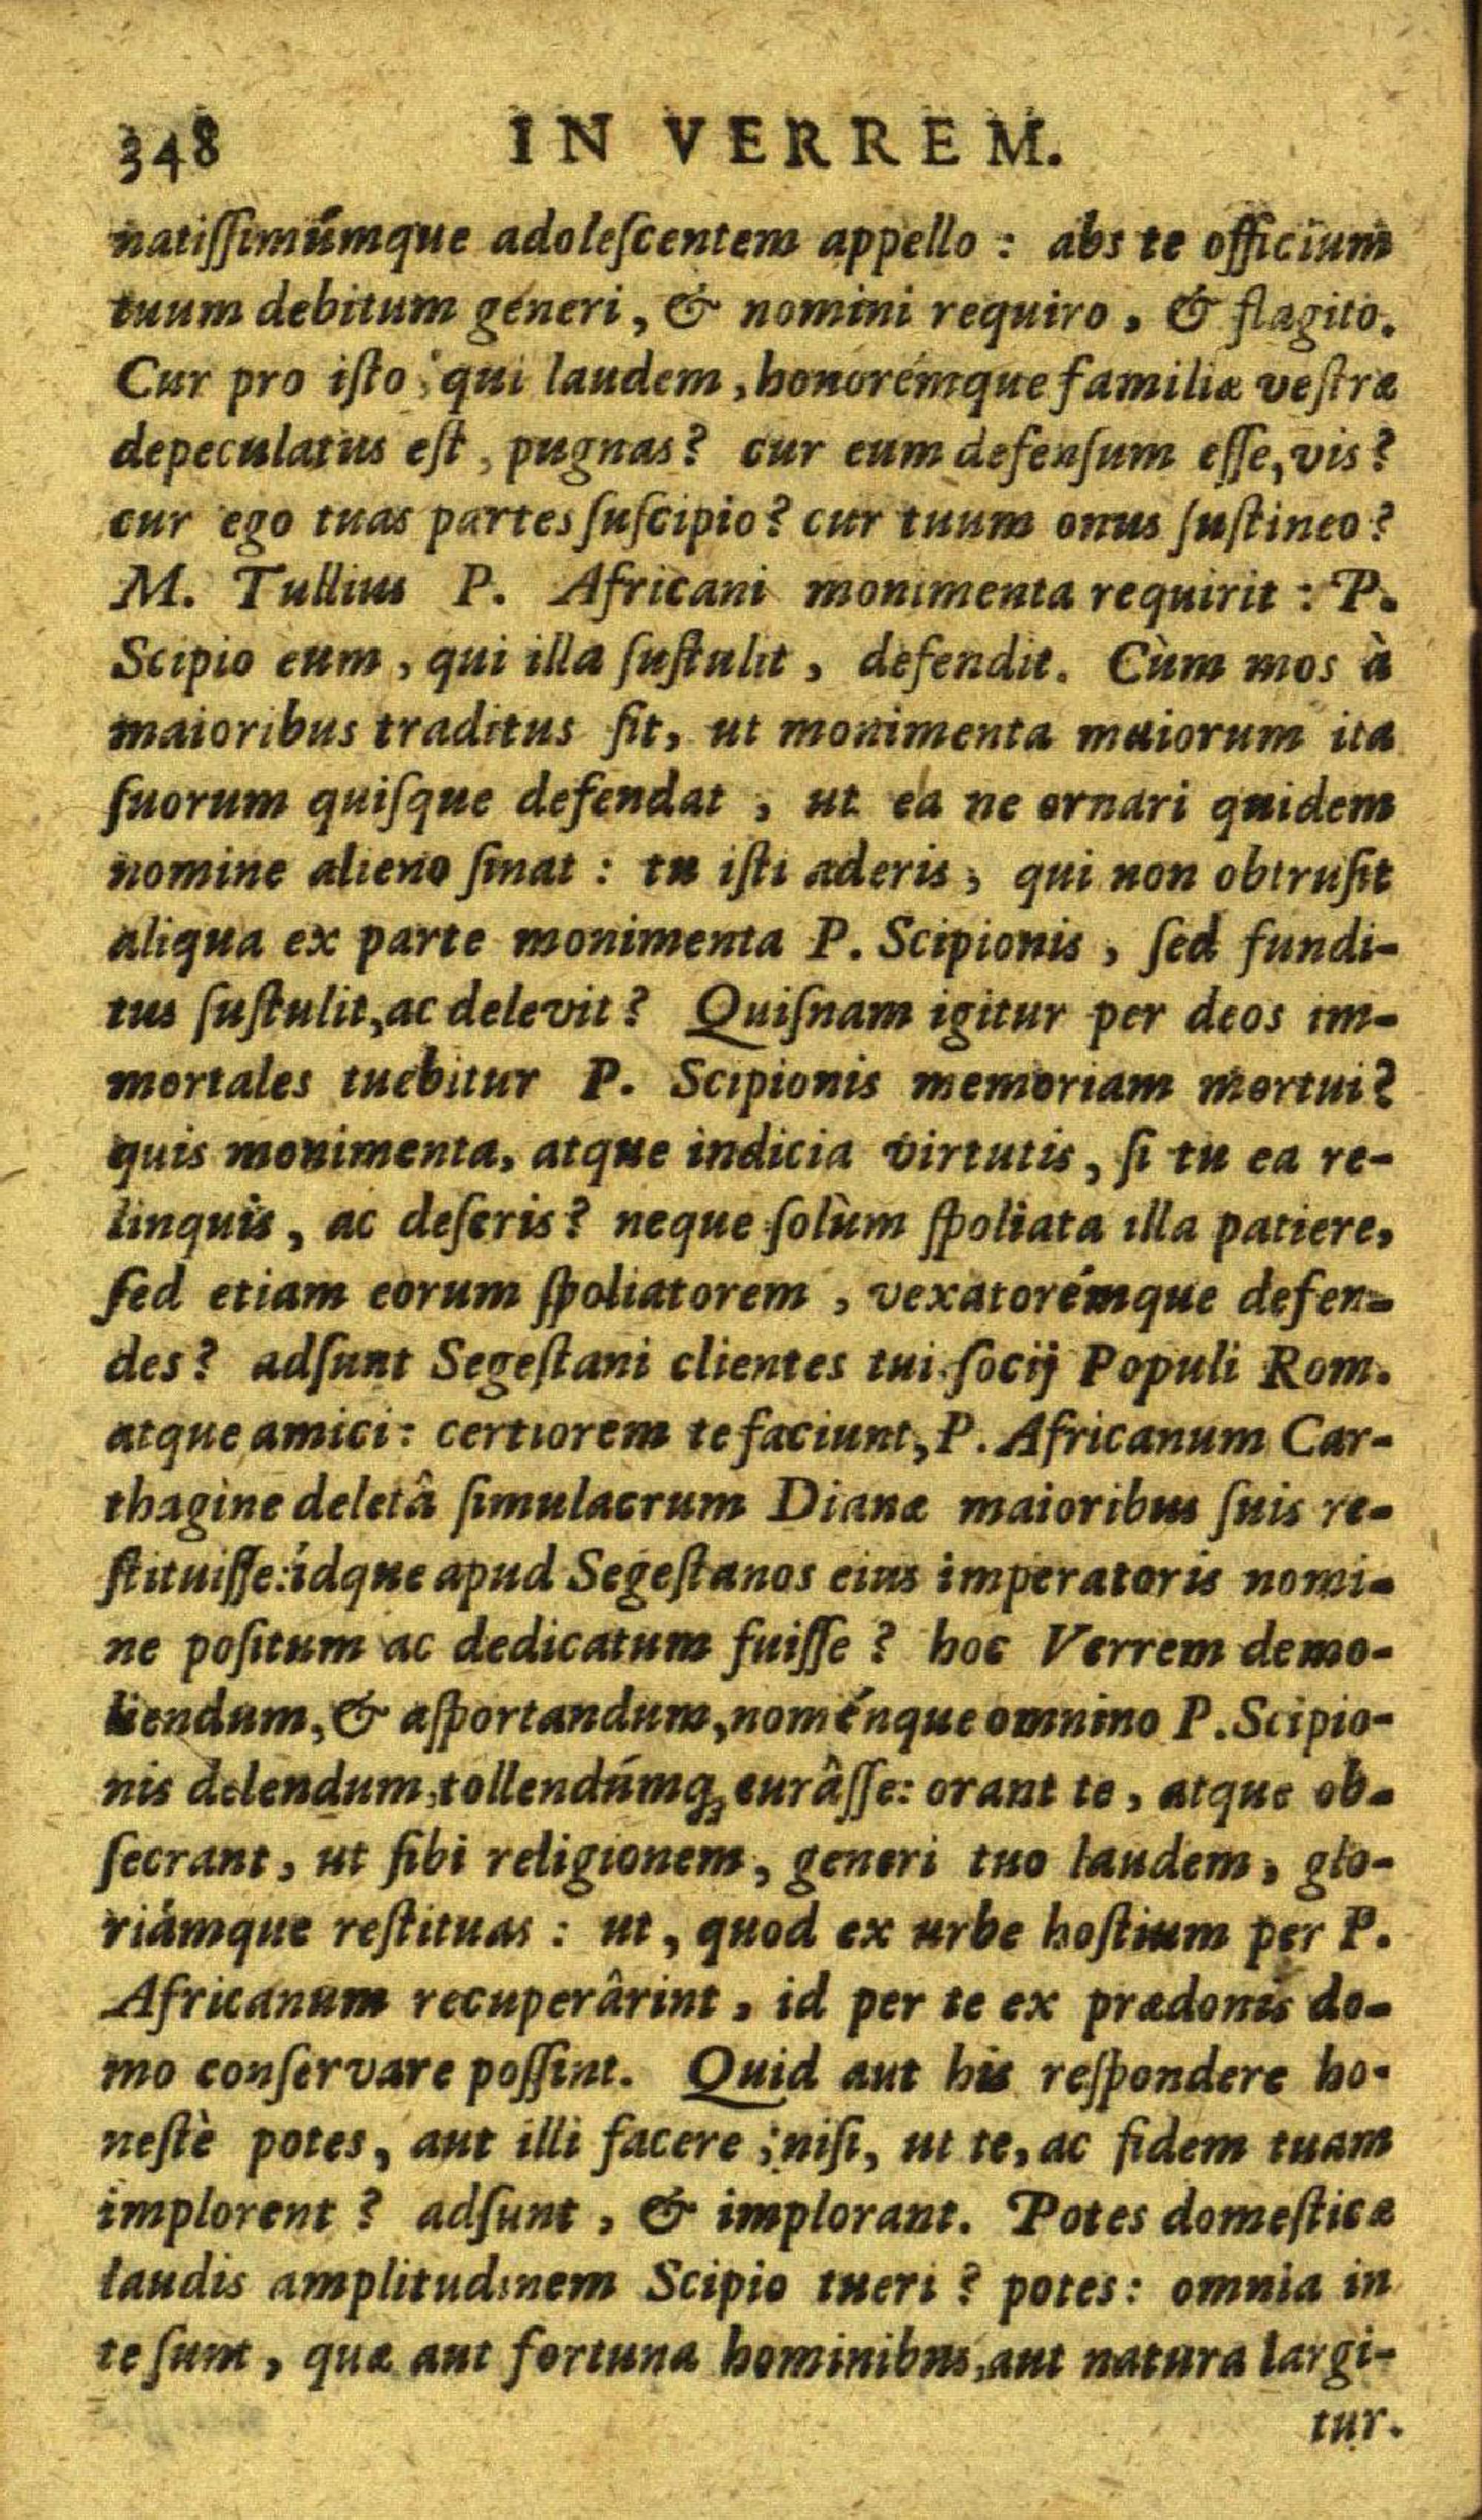 348 IN VERREM.
natiſſimúmque adoleſcentem appello : abs te officium
tuum debitum generi, & nomini requiro, & flagito.
Cur pro iſto, qui laudem, honorémque familiæ veſtræ
depeculatus eſt, pugnas? cur eum defenſum eſſe, vis?
cur ego tuas partes ſuſcipio? cur tuum onus ſuſtineo?
M. Tullius P. Africani monimenta requirit : P.
Scipio eum, qui illa ſuſtulit, defendit. Cùm mos à
maioribus traditus ſit, ut monimenta maiorum ita
ſuorum quiſque defendat, ut ea ne ornari quidem
nomine alieno ſinat : tu iſti aderis, qui non obtruſit
aliqua ex parte monimenta P. Scipionis, ſed fundi-
tus ſuſtulit, ac delevit? Quiſnam igitur per deos im-
mortales tuebitur P. Scipionis memoriam mortui?
quis monimenta, atque indicia virtutis, ſi tu ea re-
linquis, ac deſeris? neque ſolùm ſpoliata illa patiere,
ſed etiam eorum ſpoliatorem, vexatorémque defen-
des? adſunt Segeſtani clientes tui, ſocij Populi Rom.
atque amici : certiorem te faciunt, P. Africanum Car-
thagine deletâ ſimulacrum Dianæ maioribus ſuis re-
ſtituiſſe: ídque apud Segeſtanos eius imperatoris nomi-
ne poſitum ac dedicatum fuiſſe ? hoc Verrem demo-
liendum, & aſportandum, noménque omnino P. Scipio-
nis delendum, tollendúmq; curâſſe: orant te, atque ob-
ſecrant, ut ſibi religionem, generi tuo laudem, glo-
riámque reſtituas : ut, quod ex urbe hoſtium per P.
Africanum recuperârint, id per te ex prædonis do-
mo conſervare poſſint. Quid aut his reſpondere ho-
neſtè potes, aut illi facere ; niſi, ut te, ac fidem tuam
implorent ? adſunt, & implorant. Potes domeſticæ
laudis amplitudinem Scipio tueri ? potes: omnia in
te ſunt, quæ aut fortuna hominibus, aut natura largi-
tur.